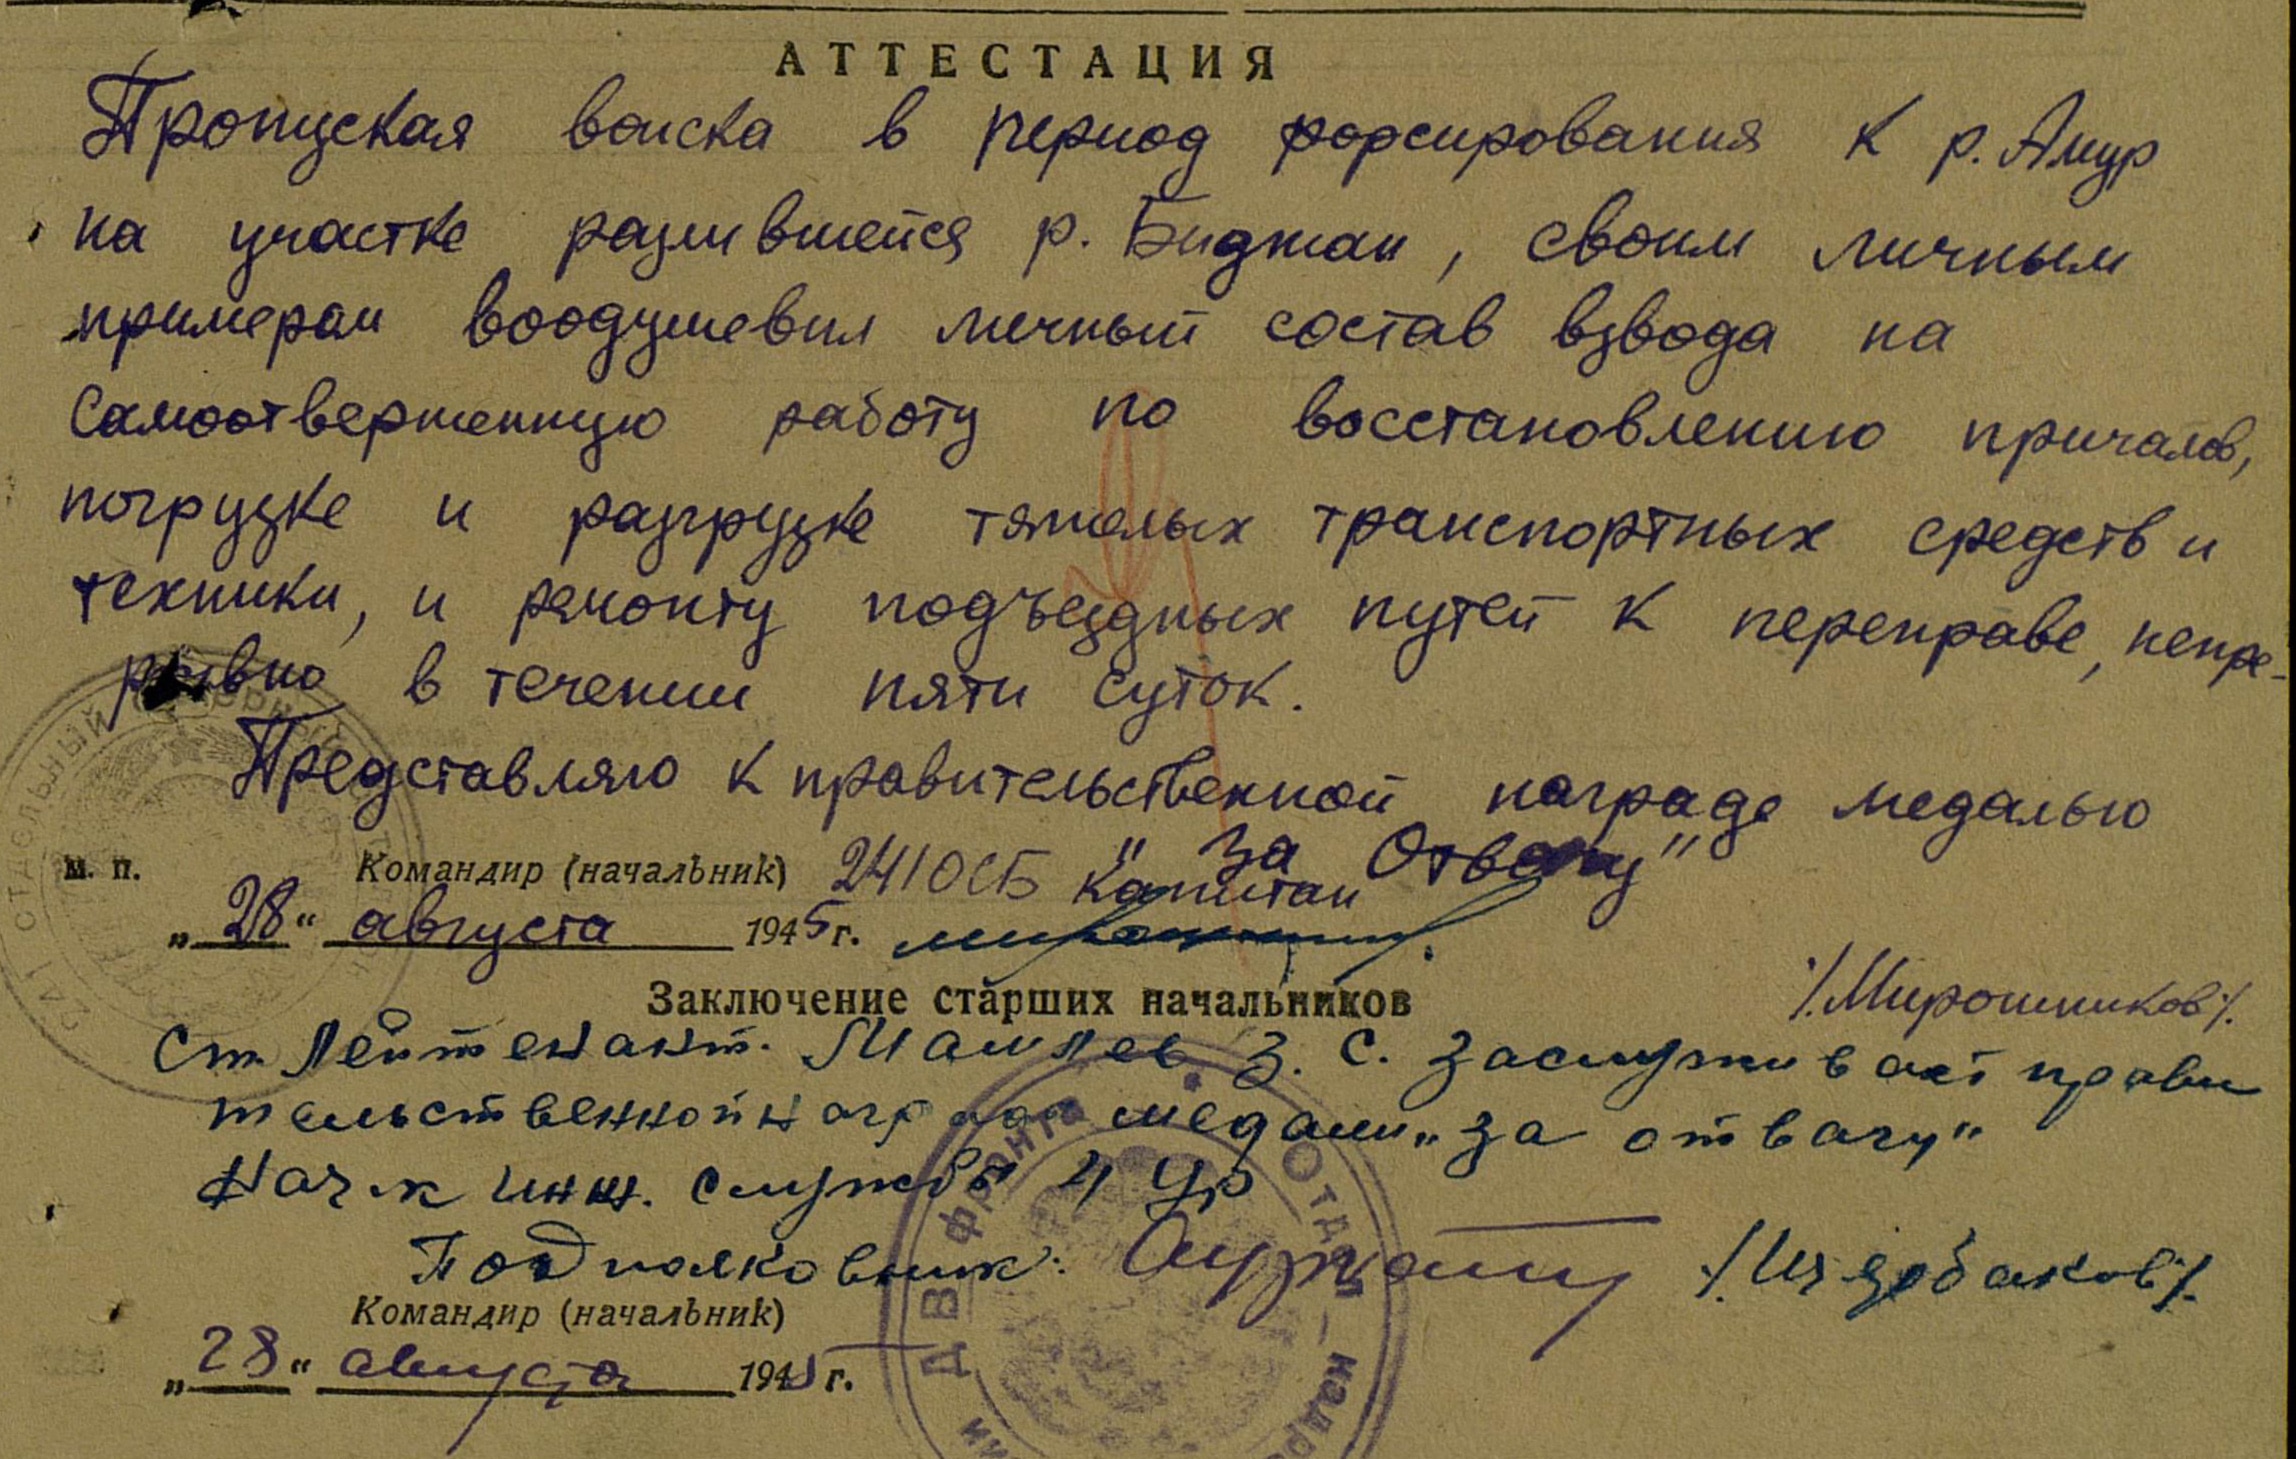 АТТЕСТАЦИЯ
Пропуская войска в период форсирования к р. Амур
на участке разлившейся р. Биджан, своим личным
примером воодушевил личный состав взвода на
самоотверженную работу по восстановлению причалов,
погрузке и разгрузке тяжелых транспортных средств и
техники, и ремонту подъездных путей к переправе, непре-
рывно в течении пяти суток.
Представляю к правительственной награде медалью
"За Отвагу"
м. п. Командир (начальник) 241 ОСБ капитан
„28" августа 1945 г.
/.Мирошников./
Заключение старших начальников
Ст. Лейтенант. З. С. заслуживает прави
тельственной награды медали „за отвагу"
Нач-к инж. службы 4 УР
Подполковник: /.Щербаков./
Командир (начальник)
„28" августа 1945 г.
241 отдельный
ДВ фронта